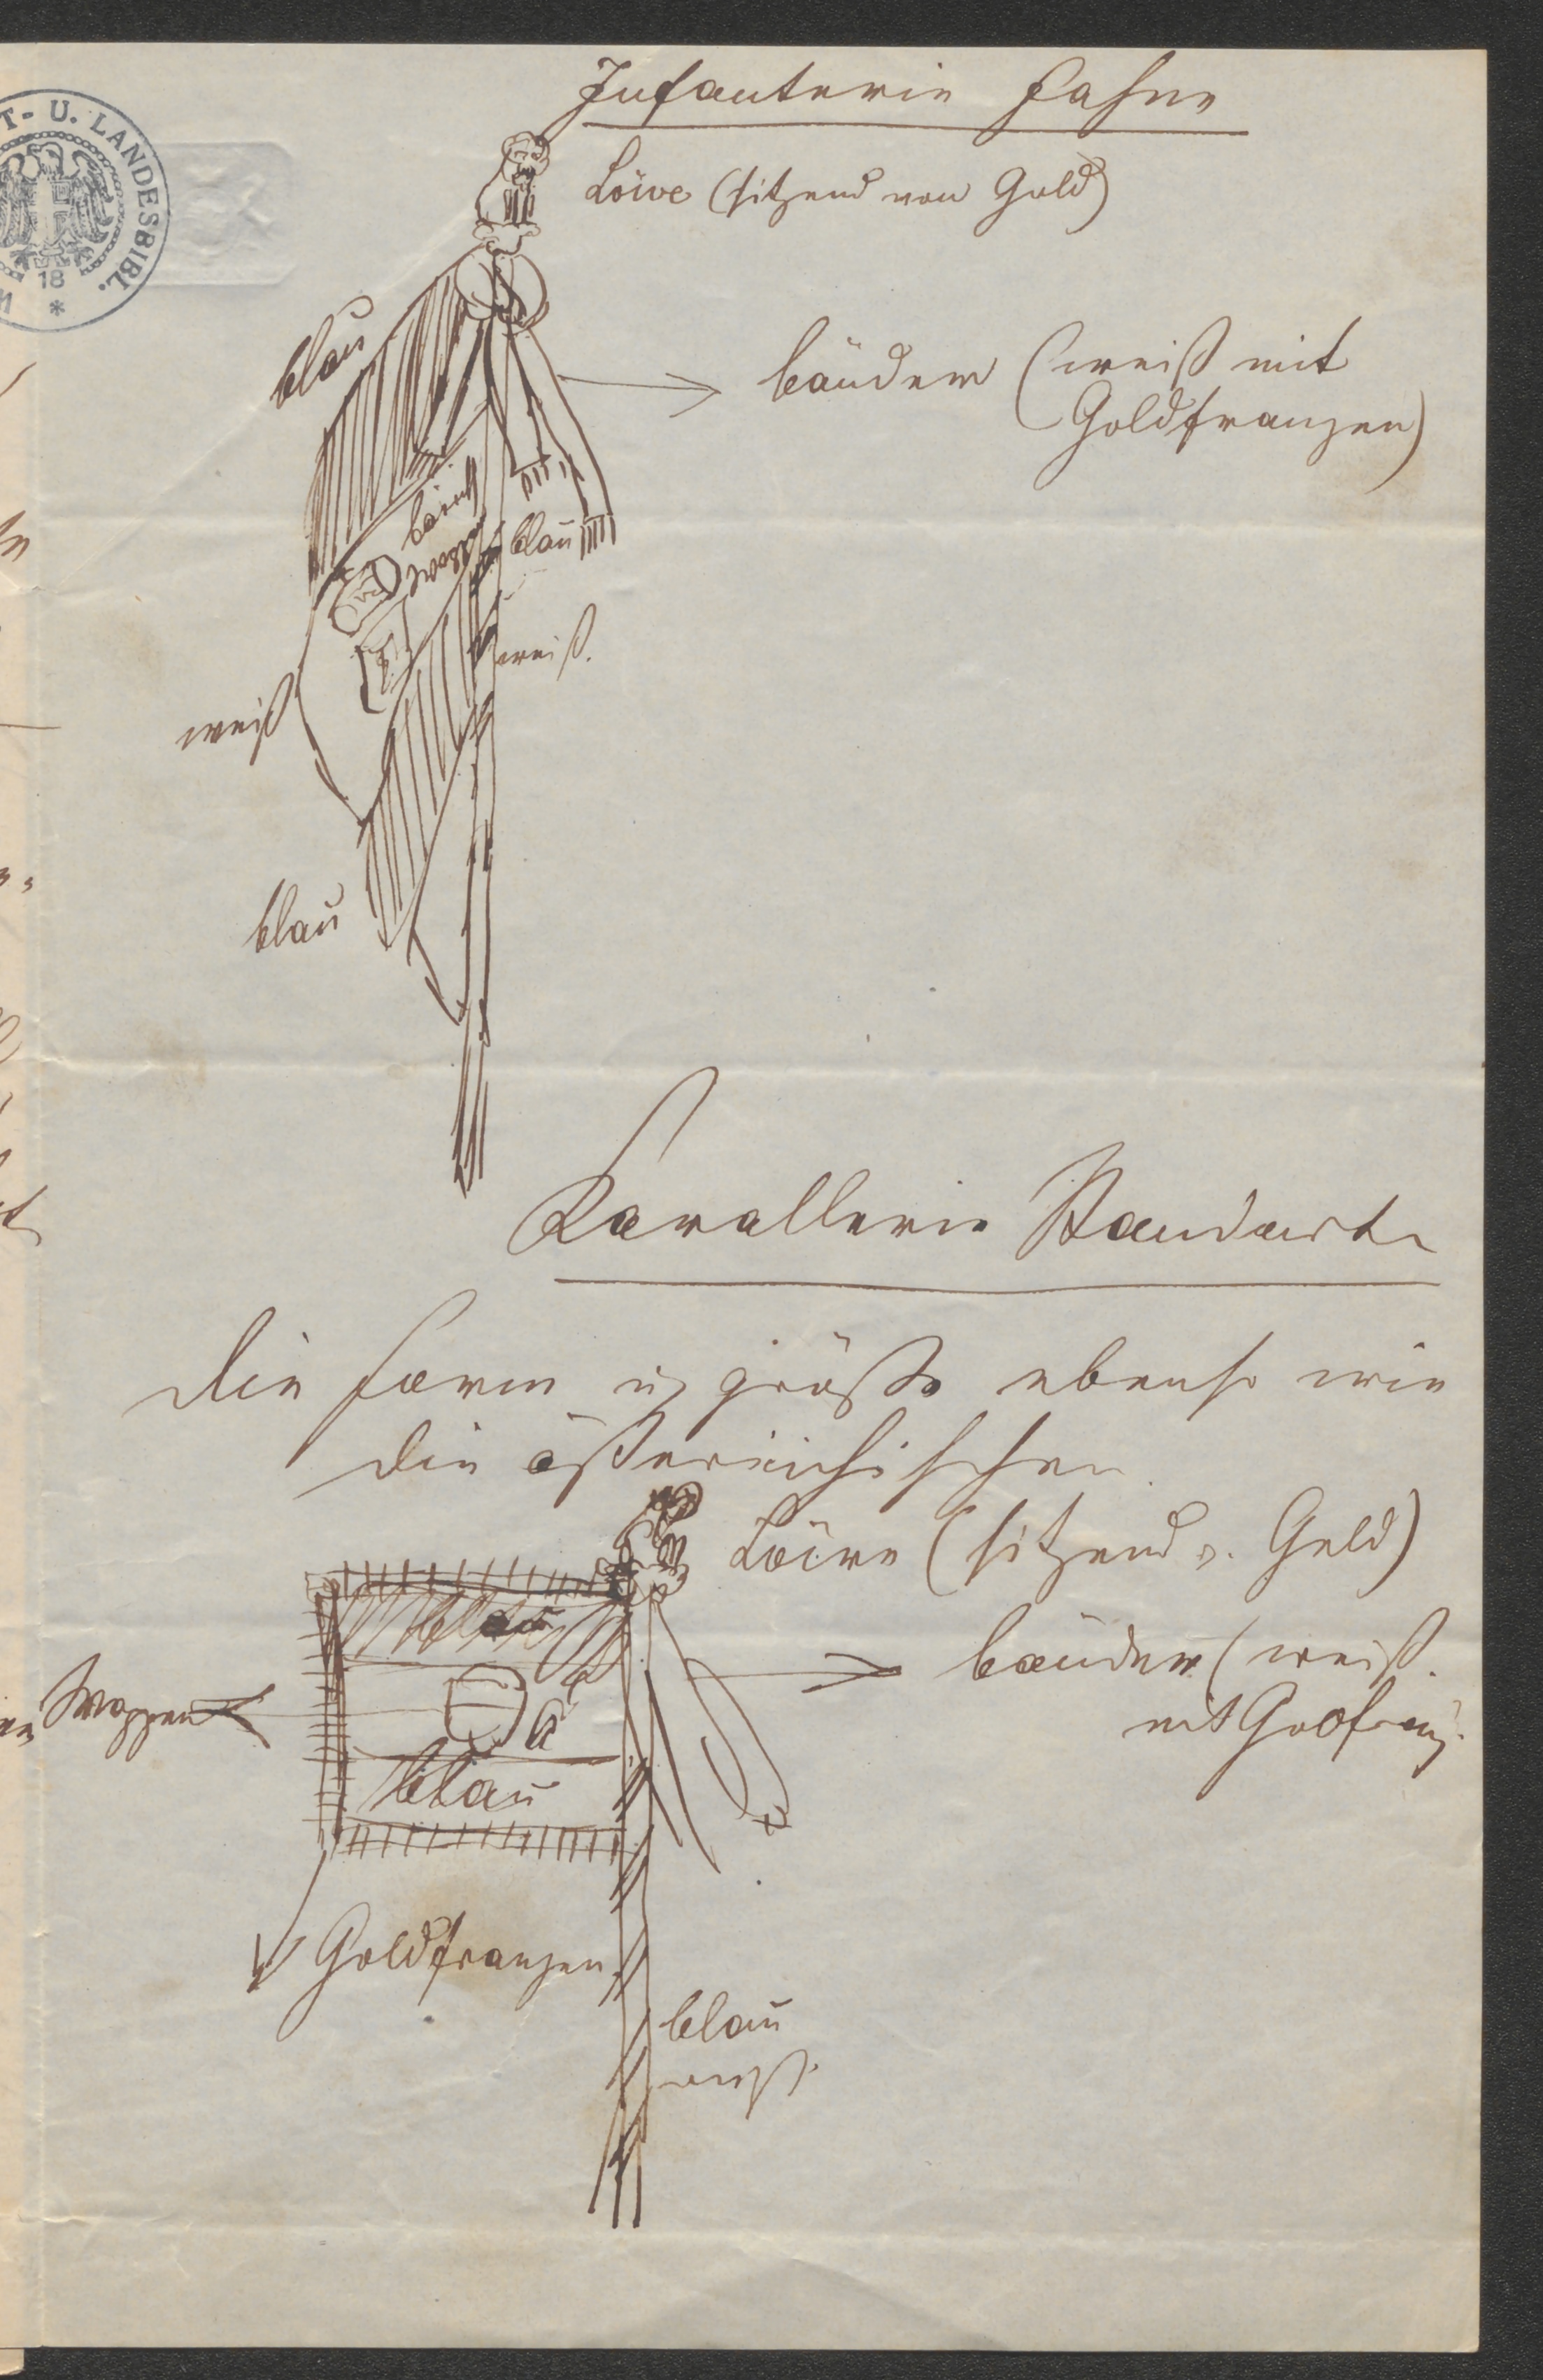 T- U. LANDESBIBL.
18
*
Infanterie Fahne
Löwe (sitzend von Gold)
blau
bänder (weiß mit
Goldfranzen)
blau
weiß.
weiß
blau
Kavallerie Standarte
die Form u größe ebenso wie
die österreichischen
Löwe (sitzend v. Gold)
blau
bänder (weiß.
mit Goldfranz.
Wappen
blau
Goldfranzen
blau
weiß.